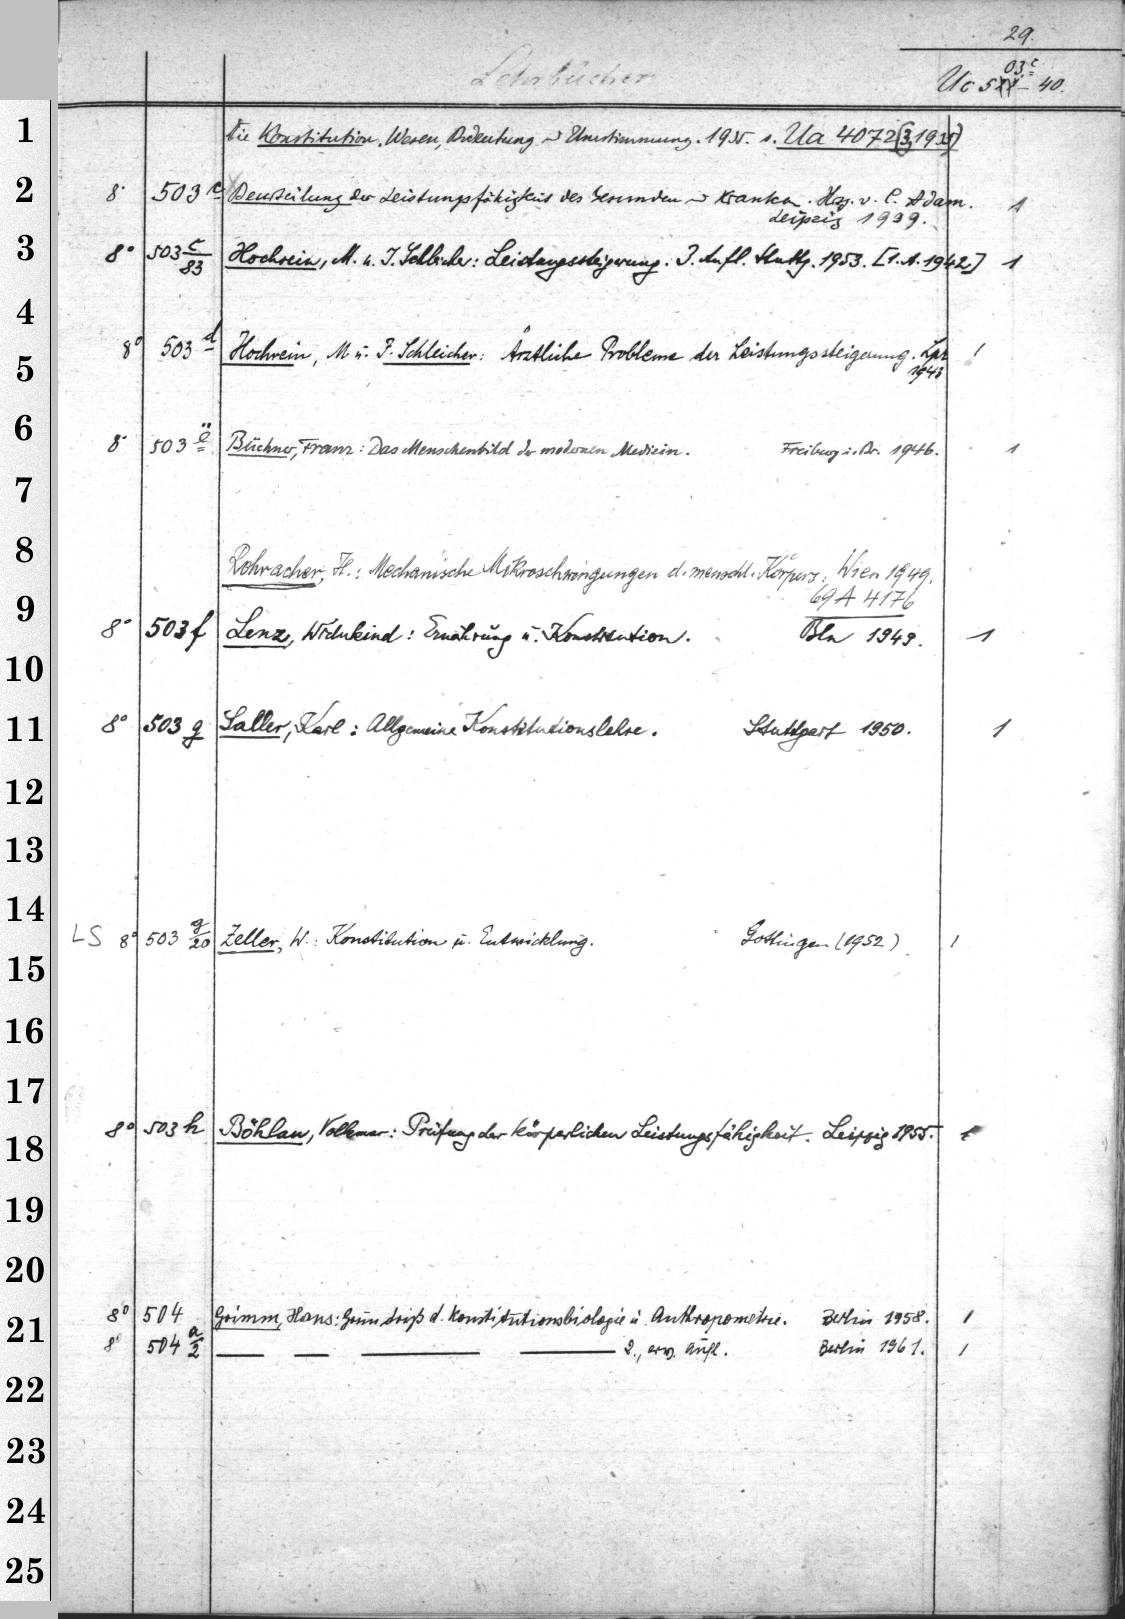 29.
Lehrbücher
03 c
Uc 5 - 40.
1 Die Konstitution, Wesen, Bedeutung u Umstimmung. 1935. s. Ua 4072 (3,1935)
2 8° 503 Beurteilung der Leistungsfähigkeit des Gesunden u Kranken. Hrg. v. C. Adam. 1
Leipzig 1939.
3 8° 503 c/83 Hochrein, M. u. I. Schleicher: Leistungssteigerung. 3. Aufl. Stuttg. 1953. [1. A. 1942] 1
4
5 8° 503 d Hochrein, M. u. I. Schleicher: Ärztliche Probleme der Leistungssteigerung. Lpz 1
1943
6 8° 503 e Büchner, Franz: Das Menschenbild der modernen Medizin. Freiburg i. Br. 1946. 1
7
8 Rohracher, H.: Mechanische Mikroschwingungen d. menschl. Körpers. Wien 1949.
69 A 4176
9 8° 503 f Lenz, Widukind: Ernährung u. Konstitution. Bln 1949. 1
10
11 8° 503 g Saller, Karl: Allgemeine Konstitutionslehre. Stuttgart 1950. 1
12
13
14
LS 8° 503 g/20 Zeller, W.: Konstitution u. Entwicklung. Göttingen (1952) 1
15
16
17
18 8° 503 h Böhlau, Volkmar: Prüfung der körperlichen Leistungsfähigkeit. Leipzig 1955.
19
20
21 8° 504 Grimm, Hans: Grundriß d. Konstitutionsbiologie u. Anthropometrie. Berlin 1958. 1
8° 504 a/2 — — — — 2., erw. Aufl. Berlin 1961. 1
22
23
24
25